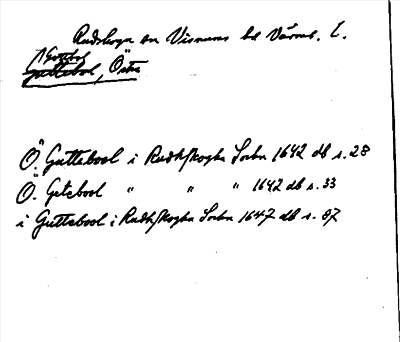 Rudskoga sn Visnums hd Värml. L.
/Gottbol
Guttebol, Östra
Ö. Guttebool i Rudhskogha Sockn 1642 db s. 28
Ö. Getebool " " " 1642 db s. 33
i Guttebool i Rudhskogha Sockn 1647 db s. 87